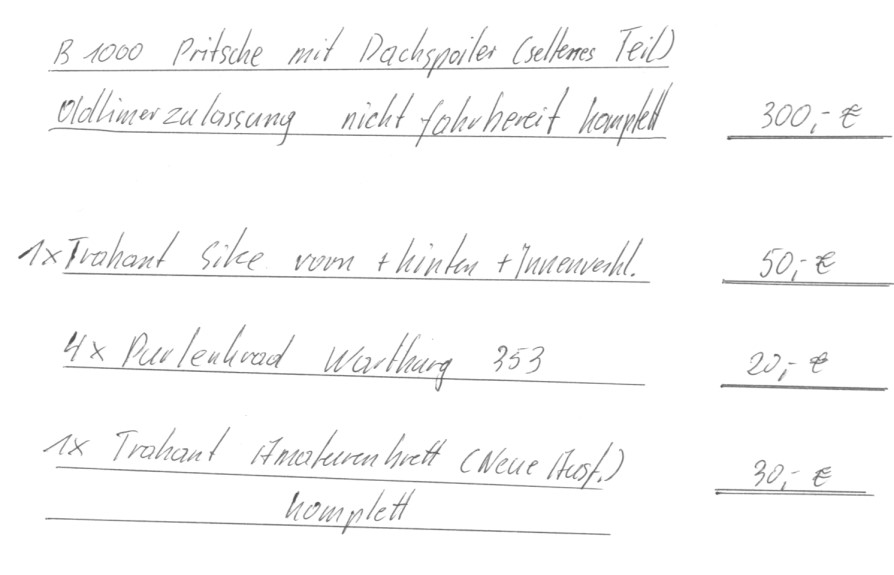 B 1000 Pritsche mit Dachspoiler (seltenes Teil)
Oldtimerzulassung nicht fahrbereit komplett 300,- €
1x Trabant Sitze vorn + hinten + Innenverkl. 50,- €
4x Lenkrad Wartburg 353 20,- €
1x Trabant Amaturenbrett (Neue Ausf.) 30,- €
komplett